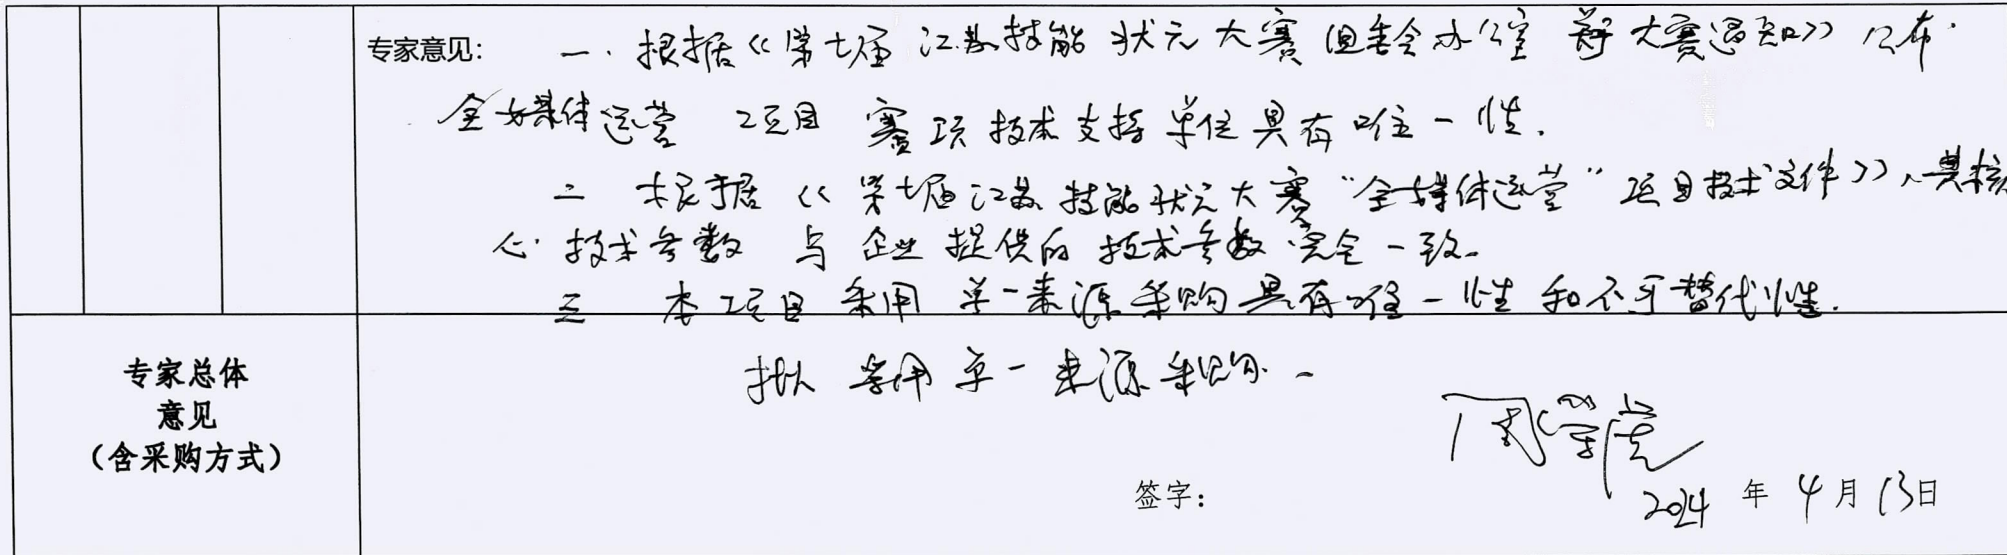 专家意见： 一. 根据《第七届江苏技能状元大赛组委会办公室 关于大赛通知》公布
全媒体运营 项目 赛项技术支持单位具有唯一性.
二 根据《第七届江苏技能状元大赛“全媒体运营”项目技术文件》、其核
心技术参数 与企业提供的技术参数完全一致。
三 本项目采用单一来源采购具有唯一性和不可替代性.
专家总体
意见
（含采购方式）
拟采用单一来源采购.
签字： 2024年4月13日